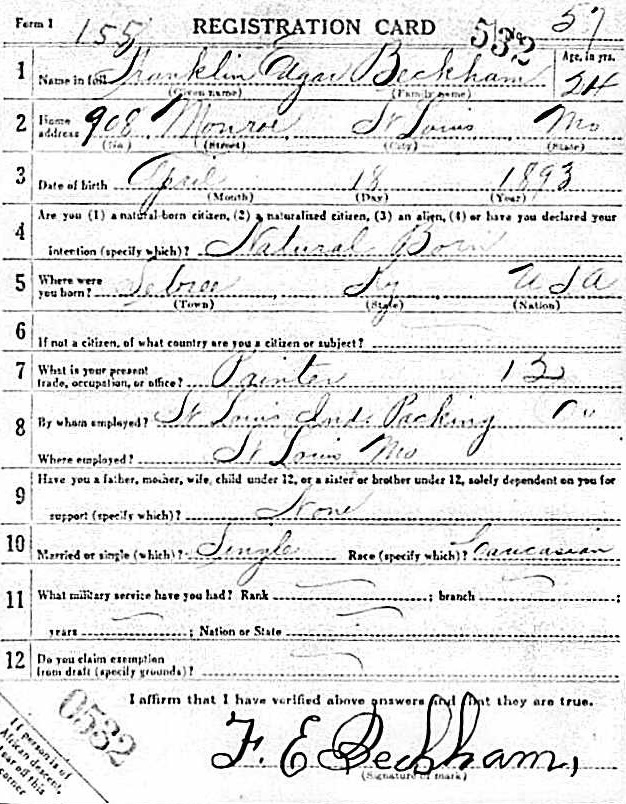 Form 1
REGISTRATION CARD
No. 57
155
532
1 Name in full Franklin Edgar Beckham
(Given name) (Family name)
Age, in yrs.
24
2 Home address 908 Monroe St Louis Mo
(No.) (Street) (City) (State)
3 Date of birth April 18 1893
(Month) (Day) (Year)
4 Are you (1) a natural-born citizen, (2) a naturalized citizen, (3) an alien, (4) or have you declared your
intention (specify which)? Natural Born
5 Where were
you born? Sebree Ky USA
(Town) (State) (Nation)
6 If not a citizen, of what country are you a citizen or subject?
7 What is your present
trade, occupation, or office? Painter 13
8 By whom employed? St Louis Ind. Packing Co
Where employed? St Louis Mo
9 Have you a father, mother, wife, child under 12, or a sister or brother under 12, solely dependent on you for
support (specify which)? None
10 Married or single (which)? Single Race (specify which)? Caucasian
11 What military service have you had? Rank ; branch ;
years ; Nation or State
12 Do you claim exemption
from draft (specify grounds)?
I affirm that I have verified above answers and that they are true.
0532
F. E Beckham,
(Signature or mark)
If person is of
African descent,
tear off this
corner